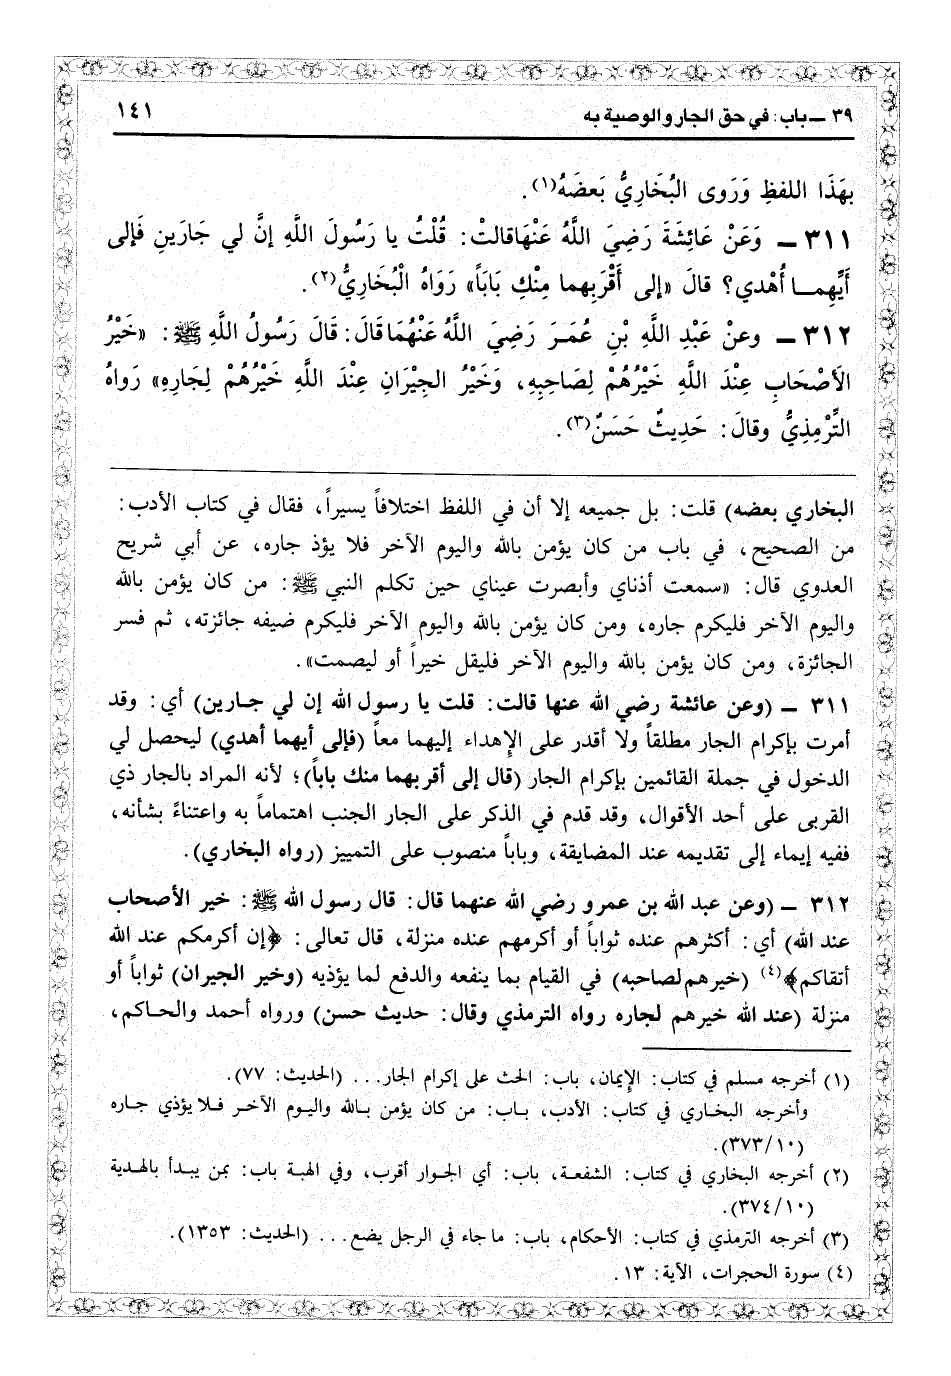 ٣٩ ــ باب: في حق الجار والوصية به
١٤١
بِهَذَا اللفظِ وَرَوى البُخَارِيُّ بَعضَهُ(١).
٣١١ ــ وَعَنْ عَائِشَةَ رَضِيَ اللَّهُ عَنْهَا قالتْ: قُلْتُ يا رَسُولَ اللَّهِ إنَّ لي جَارَينِ فَإلى
أَيِّهِمـا أُهْدي؟ قالَ «إلى أَقْرَبِهما مِنْكِ بَابَاً» رَوَاهُ الْبُخَارِيُّ(٢).
٣١٢ ــ وعنْ عَبْدِ اللَّهِ بْنِ عُمَـرَ رَضِيَ اللَّهُ عَنْهُمَا قَالَ: قَالَ رَسُولُ اللَّهِ ﷺ: «خَيْرُ
الأَصْحَابِ عِنْدَ اللَّهِ خَيْرُهُمْ لِصَاحِبِهِ، وَخَيْرُ الجِيْرَانِ عِنْدَ اللَّهِ خَيْرُهُمْ لِجَارِهِ» رَواهُ
التِّرْمِذِيُّ وقالَ: حَدِيثٌ حَسَنٌ(٣).
البخاري بعضه) قلت: بل جميعه إلا أن في اللفظ اختلافاً يسيراً، فقال في كتاب الأدب:
من الصحيح، في باب من كان يؤمن بالله واليوم الآخر فلا يؤذ جاره، عن أبي شريح
العدوي قال: «سمعت أذناي وأبصرت عيناي حين تكلم النبي ﷺ: من كان يؤمن بالله
واليوم الآخر فليكرم جاره، ومن كان يؤمن بالله واليوم الآخر فليكرم ضيفه جائزته، ثم فسر
الجائزة، ومن كان يؤمن بالله واليوم الآخر فليقل خيراً أو ليصمت».
٣١١ ــ (وعن عائشة رضي الله عنها قالت: قلت يا رسول الله إن لي جـارين) أي: وقد
أمرت بإكرام الجار مطلقاً ولا أقدر على الإهداء إليهما معاً (فإلى أيهما أهدي) ليحصل لي
الدخول في جملة القائمين بإكرام الجار (قال إلى أقربهما منك باباً)؛ لأنه المراد بالجار ذي
القربى على أحد الأقوال، وقد قدم في الذكر على الجار الجنب اهتماماً به واعتناءً بشأنه،
ففيه إيماء إلى تقديمه عند المضايقة، وباباً منصوب على التمييز (رواه البخاري).
٣١٢ ــ (وعن عبد الله بن عمرو رضي الله عنهما قال: قال رسول الله ﷺ: خير الأصحاب
عند الله) أي: أكثرهم عنده ثواباً أو أكرمهم عنده منزلة، قال تعالى: ﴿إن أكرمكم عند الله
أتقاكم﴾(٤) (خيرهم لصاحبه) في القيام بما ينفعه والدفع لما يؤذيه (وخير الجيران) ثواباً أو
منزلة (عند الله خيرهم لجاره رواه الترمذي وقال: حديث حسن) ورواه أحمد والحـاكم،
(١) أخرجه مسلم في كتاب: الإيمان، باب: الحث على إكرام الجار... (الحديث: ٧٧).
وأخرجه البخاري في كتاب: الأدب، بـاب: من كان يؤمن بـالله واليوم الآخـر فـلا يؤذي جـاره
(٣٧٣/١٠).
(٢) أخرجه البخاري في كتاب: الشفعـة، باب: أي الجـوار أقرب، وفي الهبة باب: بمن يبـدأ بالهـدية
(٣٧٤/١٠).
(٣) أخرجه الترمذي في كتاب: الأحكام، باب: ما جاء في الرجل يضع... (الحديث: ١٣٥٣).
(٤) سورة الحجرات، الآية: ١٣.